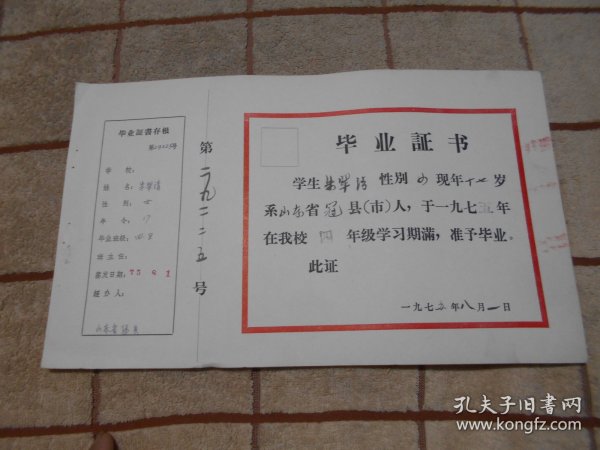 毕业証書存根
学 校:
姓 名:
性 别: 女
年 令: 17
毕业班级:
班主任:
签发日期: 75 8 1
经办人:
第二九二二五号
毕业証书
学生 性别 女 现年十七岁
系山东省冠县(市)人,于一九七五年
在我校 四 年级学习期满,准予毕业。
此证
一九七五年八月一日
孔夫子旧书网
www.kongfz.com